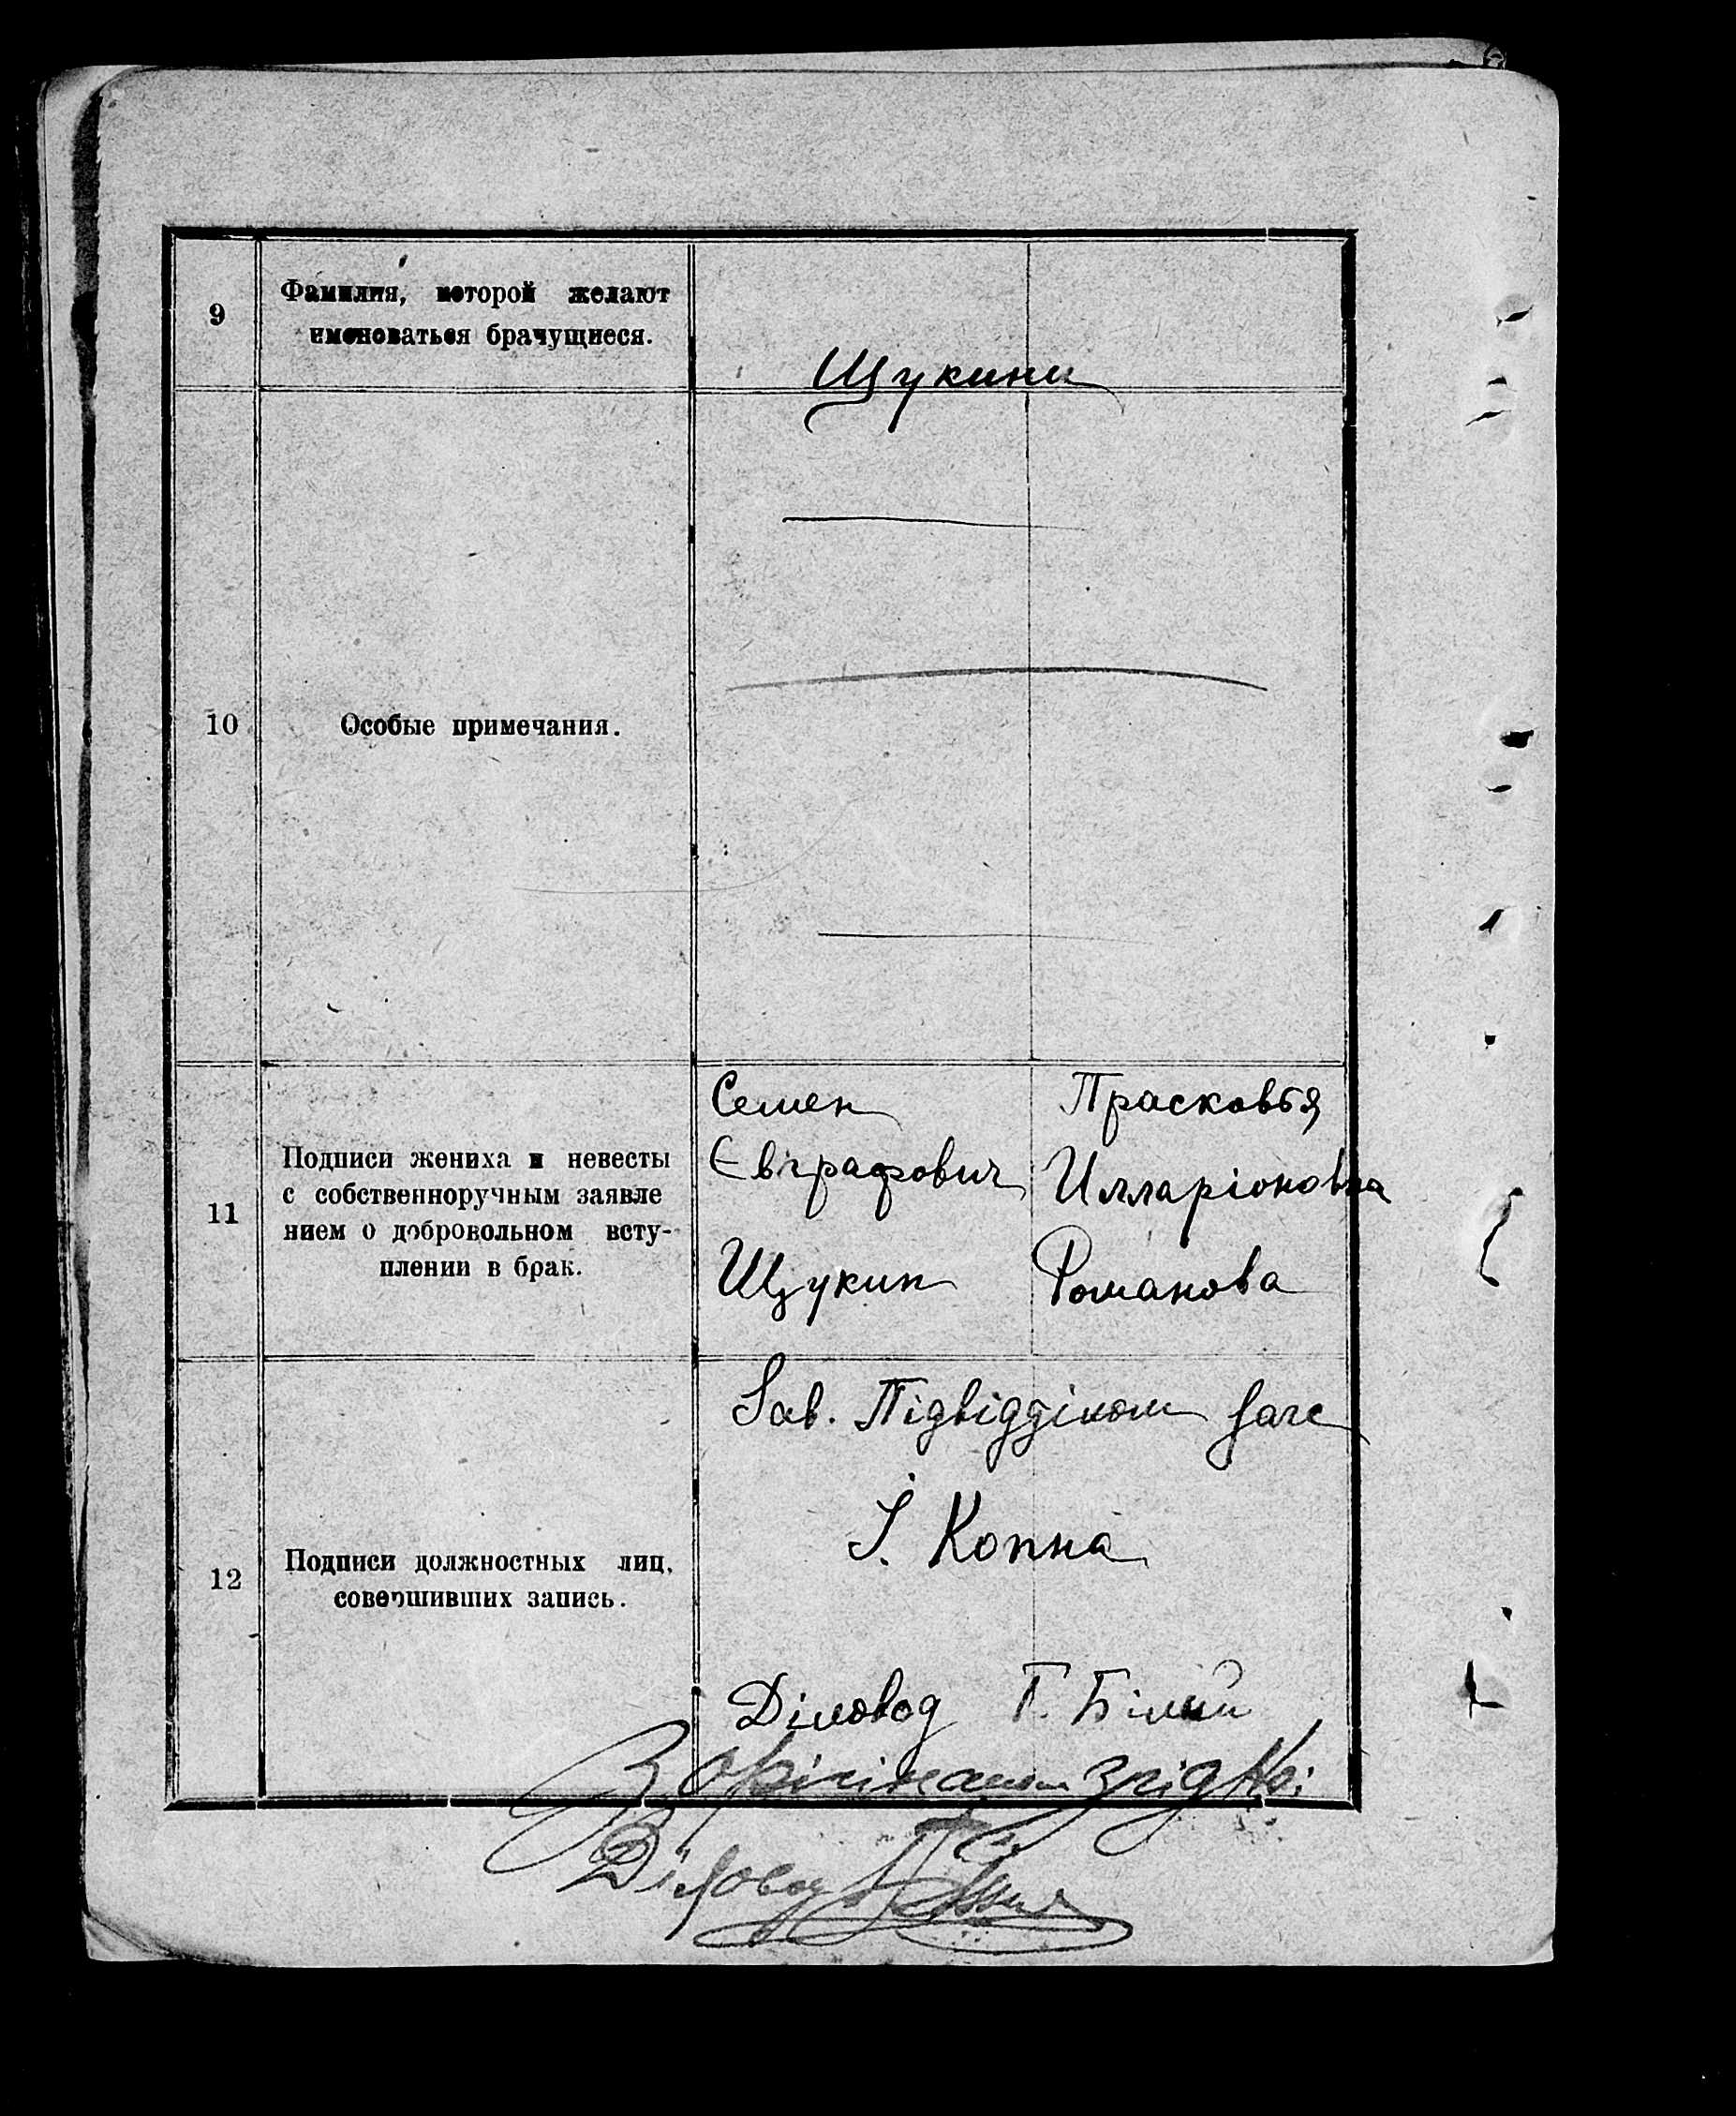 9
Фамилия, которой желают
именоваться брачущиеся.
Щукины
10
Особые примечания.
11
Подписи жениха и невесты
с собственноручным заявле
нием о добровольном всту-
плении в брак.
Семен
Євграфович
Щукин
Прасковья
Илларіоновна
Романова
12
Подписи должностных лиц,
совершивших запись.
Зав. Підвідділом
І. Копна
Діловод Г. Білий
З орігіналом згідно:
Діловод